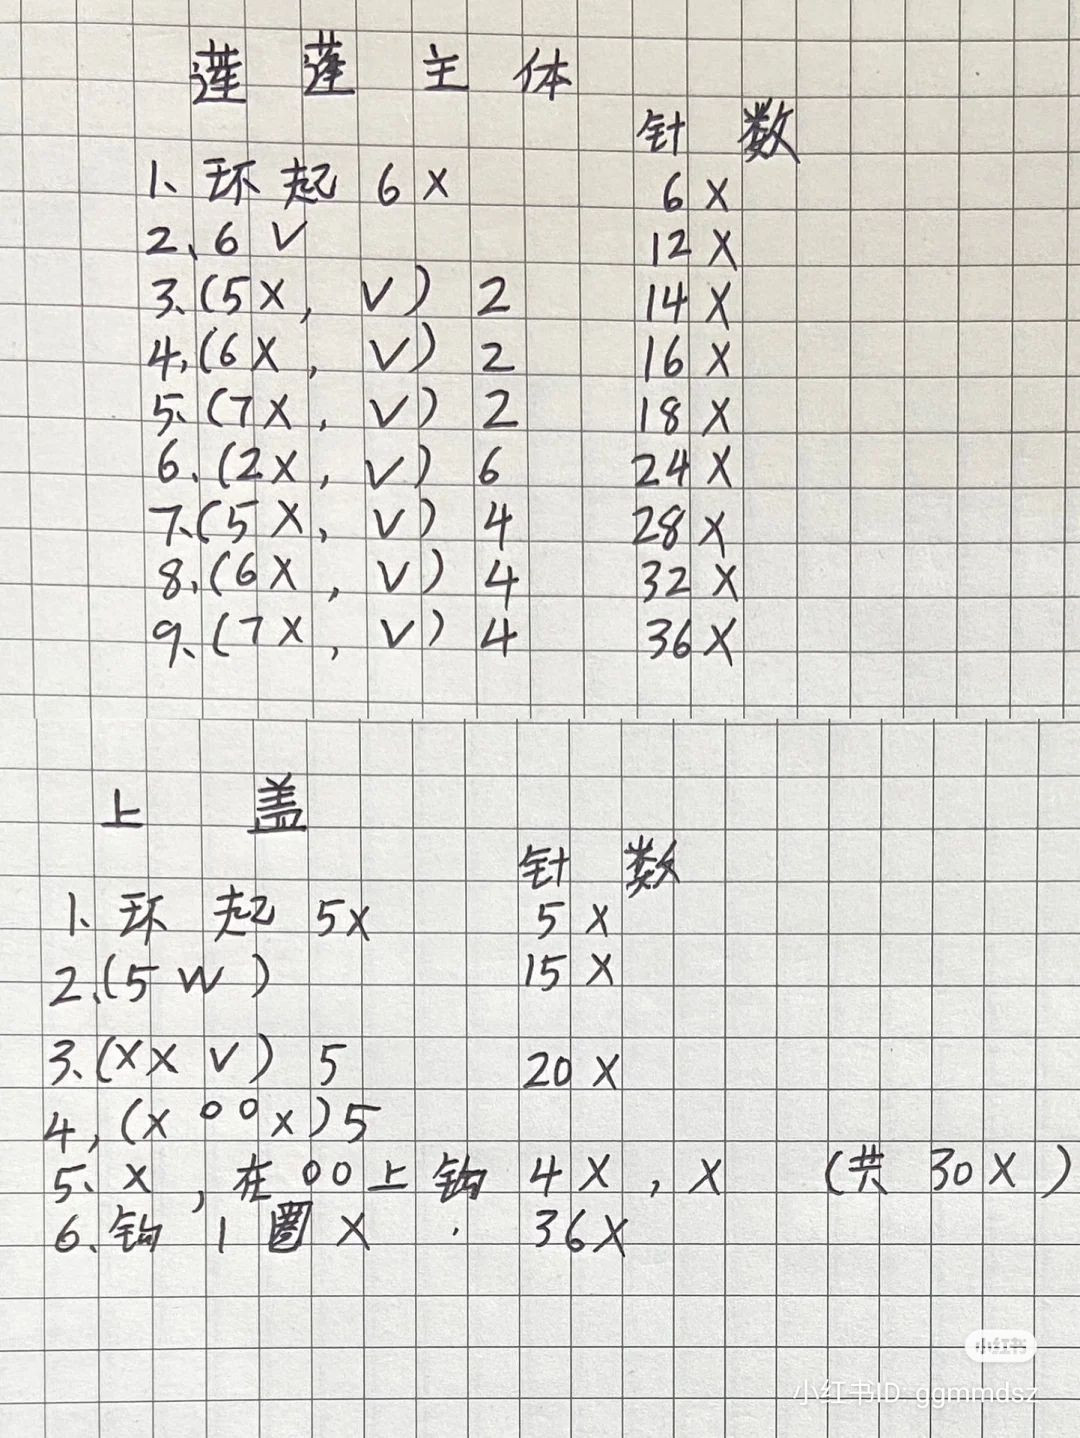 莲蓬主体
针数
1、环起6X 6X
2、6V 12X
3、(5X, V) 2 14X
4、(6X, V) 2 16X
5、(7X, V) 2 18X
6、(2X, V) 6 24X
7、(5X, V) 4 28X
8、(6X, V) 4 32X
9、(7X, V) 4 36X
上盖
针数
1、环起5X 5X
2、(5W) 15X
3、(XXV) 5 20X
4, (X00X)5
5、X, 在00上钩4X, X (共30X)
6、钩1圈X. 36X
小红书
小红书ID: ggmmdsz